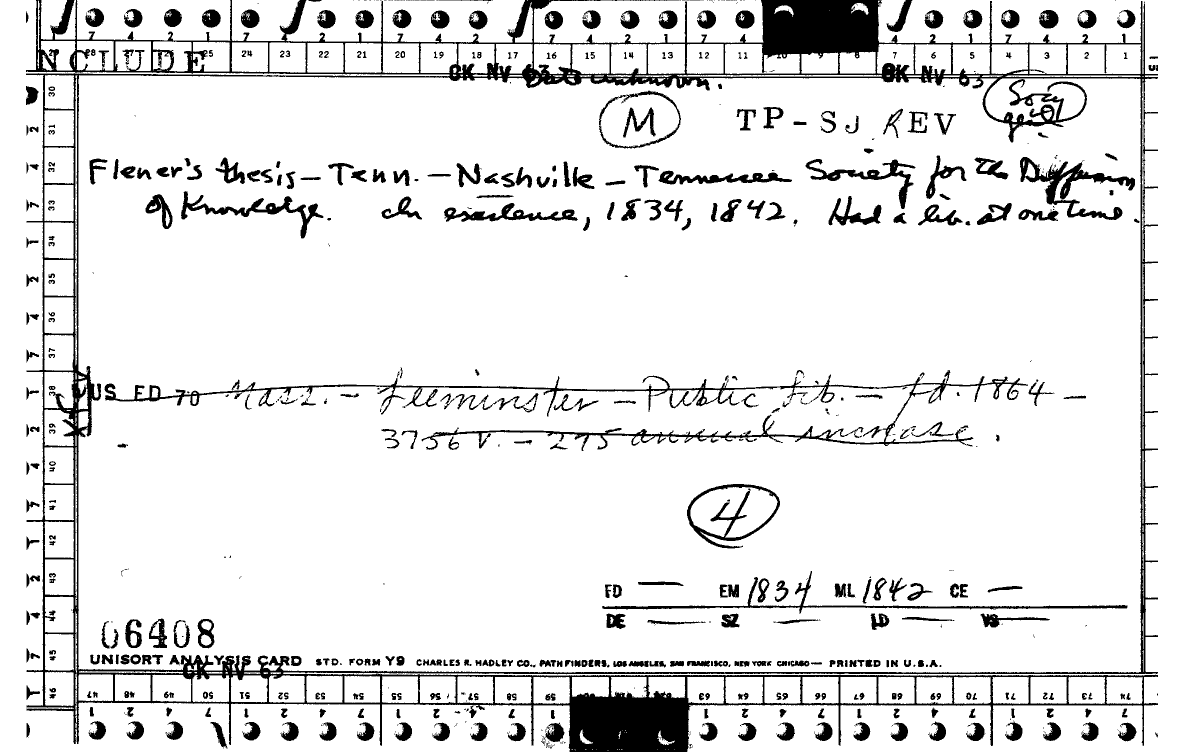 7 4 2 1 7 4 2 1 7 4 2 1 7 4 2 1 4 2 1 7 4 2 1
INCLUDE 28 27 26 25 24 23 22 21 20 19 18 17 16 15 14 13 12 11 10 9 8 7 6 5 4 3 2 1
CK NV 63 Date unknown. CK NV 63
M TP-SJ REV Socy
Flener's thesis – Tenn. – Nashville – Tennessee Society for the Diffusion
of Knowledge. In existence, 1834, 1842. Had a lib. at one time.
US ED 70 Mass. – Leeminster – Public Lib. – fd. 1864 –
3756 V. – 275 annual increase.
4
FD — EM 1834 ML 1842 CE —
DE — SZ — LD — VS —
06408
UNISORT ANALYSIS CARD STD. FORM Y9 CHARLES R. HADLEY CO., PATHFINDERS, LOS ANGELES, SAN FRANCISCO, NEW YORK CHICAGO — PRINTED IN U.S.A.
CK NV 63
30
31
32
33
34
35
36
37
38
39
40
41
42
43
44
45
46
47 48 49 50 51 52 53 54 55 56 57 58 59 63 64 65 66 67 68 69 70 71 72 73 74
1 2 4 7 1 2 4 7 1 2 4 7 1 1 2 4 7 1 2 4 7 1 2 4 7